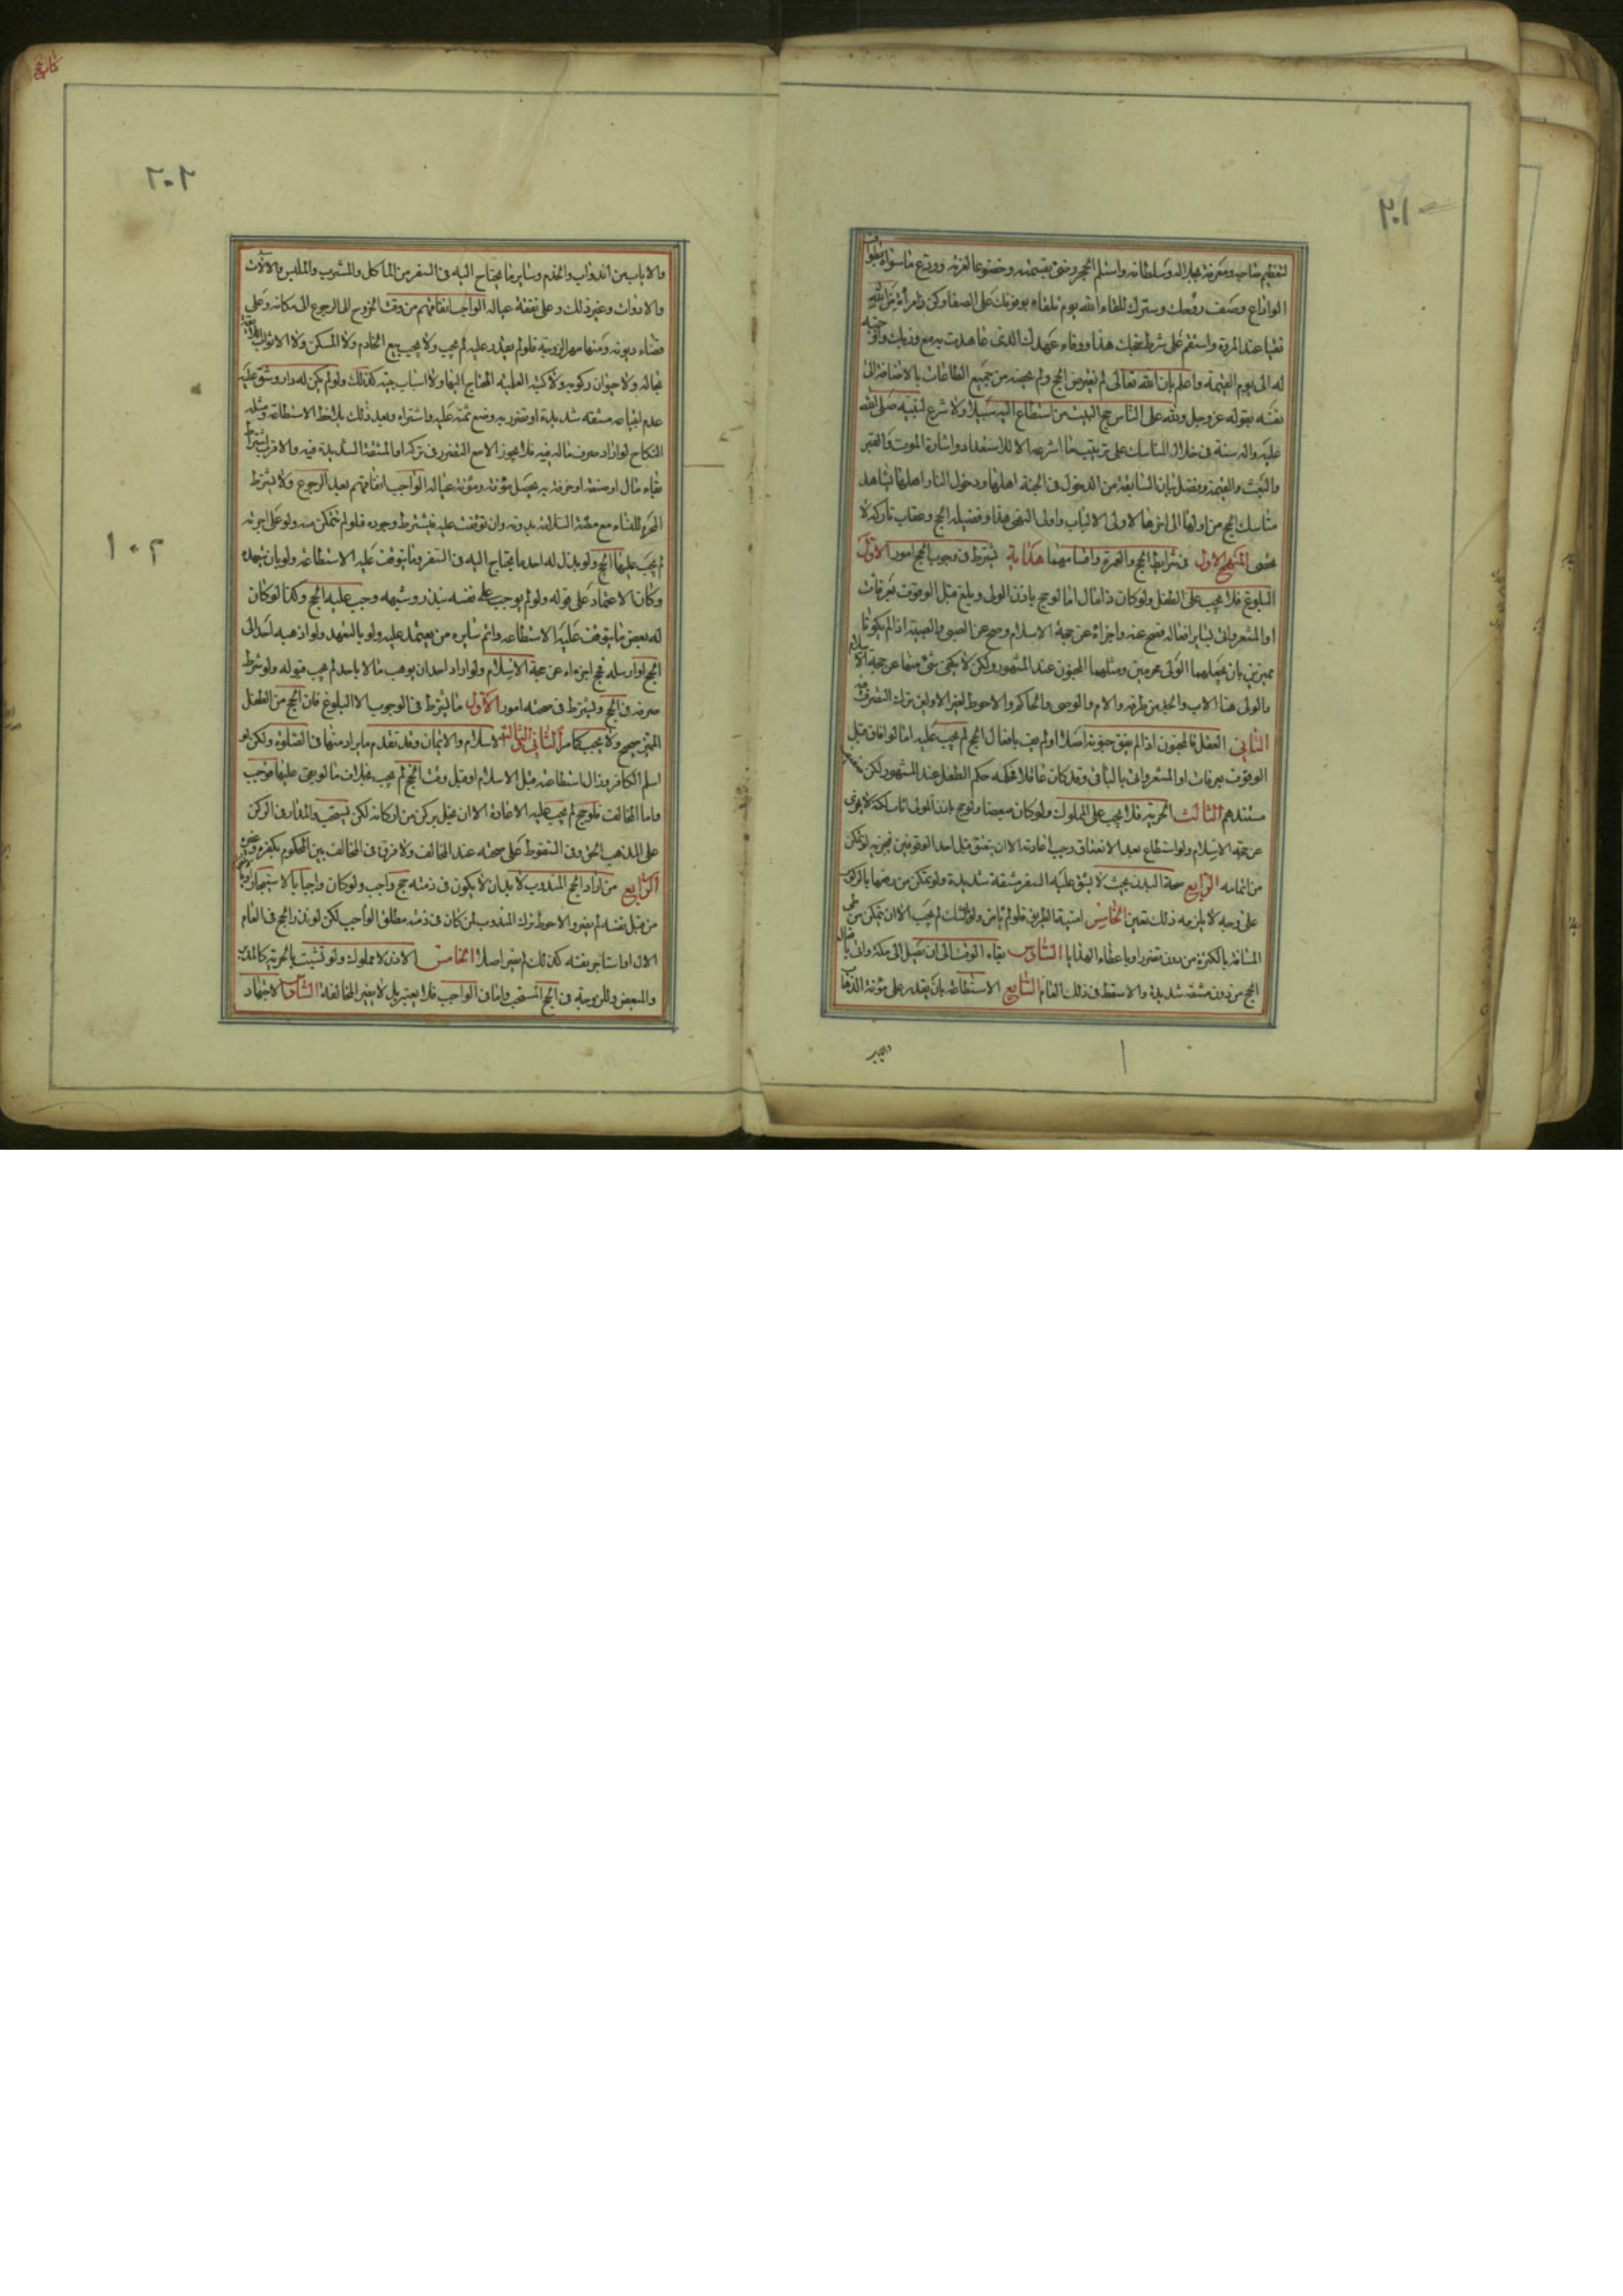 ٢٠١
لتعظيم صاحبه ومعرفة جلاله وسلطانه واستلم الحجر رضى بقسمته وخضوعا لعزته وودع ما سواه بطواف
الوداع وصف روحك وسترك للقاء الله يوم تلقاه بوقوفك على الصفا وكن ذا مرأة من الله
نقيا عند المروة واستقم على شرط حجتك هذا ووفاء عهدك الذى عاهدت به مع ربك واوجبته
له الى يوم القيمة واعلم بان الله تعالى لم يفترض الحج ولم يخصه من جميع الطاعات بالاضافة الى
نفسه بقوله عز وجل ولله على الناس حج البيت من استطاع اليه سبيلا ولا شرع لنبيه صلى الله
عليه واله سنة فى خلال المناسك على ترتيب ما شرعه الا للاستعداد واشارة الموت والقبر
والبعث والقيمة وفصل بيان السابقة من الدخول فى الجنة اهلها ودخول النار اهلها بمشاهدة
مناسك الحج من اولها الى اخرها لاولى الالباب واولى النهى هذا وفضيلة الحج وعقاب تاركه لا
يحصى المنهج الاول فى شرايط الحج والعمرة واقسامهما هداية يشترط فى وجوب الحج امور الاول
البلوغ فلا يجب على الطفل ولو كان ذا مال اما لو حج باذن الولى وبلغ قبل الوقوف بعرفات
او المشعر واتى بساير افعاله فصح عنه واجزاه عن حجة الاسلام وصح عن الصبى والصبية اذا لم يكونا
مميزين بان يجعلهما الولى محرمين ومثلهما المجنون عند المشهور ولكن لا يكفى شئ منها عن حجة الاسلام
والولى هنا الاب والجد من طرفه والام والوصى والحاكم والاحوط لغير الاولين ترك التصرف فيه
الثانى العقل فالمجنون اذا لم يفق جنونه اصلا او لم يف بافعال الحج لم يجب عليه اما لو افاق قبل
الوقوف بعرفات او المشعر واتى بالباقى وقد كان عاقلا فحكمه حكم الطفل عند المشهور لكن
مستندهم الثالث الحرية فلا يجب على المملوك ولو كان مبعضا ولو حج باذن المولى لكنه لا يجزى
عن حجة الاسلام ولو استطاع بعد الانعتاق وجب اعادته الا ان ينعتق قبل احد الوقوفين فيجزيه لو تمكن
من اتمامه الرابع صحة البدن بحيث لا يشق عليه السفر مشقة شديدة ولو تمكن من رفعها بالركوب
على وجه لا يلزمه ذلك تعين الخامس امنية الطريق فلو لم يامن ولو بالشك لم يجب الا ان يتمكن من طى
المسافة بالكثرة من دون تضرر او باعطاء الهدايا السادس بقاء الوقت الى ان يصل الى مكة واتى بافعال
الحج من دون مشقة شديدة والا سقط فى ذلك العام السابع الاستطاعة بان يقدر على مؤنة الذهاب
والاياب
كتاب الحج
٢٠٢
١٠٢
والاياب من الدواب والخدم وساير ما يحتاج اليه فى السفر من الماكل والمشرب والملبس والالات
والادوات وغير ذلك وعلى نفقة عياله الواجب انفاقهم من وقت الخروج الى الرجوع الى مكانه وعلى
قضاء ديونه ومنها مهر الزوجة فلو لم يقدر عليه لم يجب ولا يجب بيع الخادم ولا المسكن ولا الاثواب اللايقة
بحاله ولا حيوان ركوبه ولا كتبه العلمية المحتاج اليها ولا اسباب بيته كذلك ولو لم يكن له دار وشق عليه
عدم ابتياعه مشقة شديدة او تضرر به وضع ثمنه عليه واشتراه وبعد ذلك يلاحظ الاستطاعة ومثله
النكاح لو اراد صرف ماله فيه فلا يجوز الا مع التضرر فى تركه او المشقة الشديدة فيه والاقرب اشتراط
بقاء مال او صنعة او حرفة به يحصل مؤنته ومؤنة عياله الواجب انفاقهم بعد الرجوع ولا يشترط
المحرم للنساء مع مظنة السلامة بدونه وان توقفت عليه فيشترط وجوده فلو لم تتمكن منه ولو على اجرته
لم يجب عليها الحج ولو بذل له احد ما يحتاج اليه فى السفر وما يتوقف عليه الاستطاعة ولو بان يتعهد
وكان الاعتماد على قوله ولو لم يوجب على نفسه بنذر وشبهه وجب عليه الحج وكذا لو كان
له بعض ما يتوقف عليه الاستطاعة واتم سايره من يعتمد عليه ولو بالتعهد ولو اذهبه احد الى
الحج او ارسله فحج اجزءاه عن حجة الاسلام ولو اراد احد ان يوهب مالا باحد لم يجب قبوله ولو شرط
صرفه فى الحج ويشترط فى صحته امور الاول ما اشترط فى الوجوب الا البلوغ فان الحج من الطفل
المميز صحيح ولا يجب كما مر الثانى والثالث الاسلام والايمان وقد تقدم ما يراد منها فى الصلوة ولكن لو
اسلم الكافر وزال استطاعته قبل الاسلام او قبل وقت الحج لم يجب بخلاف ما لو بقى عليها فوجب
واما المخالف فلو حج لم يجب عليه الاعادة الا ان يخل بركن من اركانه لكن يستحب والمدار فى الركن
على المذهب الحق وفى السقوط على صحته عند المخالف ولا فرق فى المخالف بين المحكوم بكفره وغيره
الرابع من اراد الحج المندوب لا بد ان لا يكون فى ذمته حج واجب ولو كان واجبا بالاستيجار
من قبل نفسه لم يضر والاحوط ترك المندوب لمن كان فى ذمته مطلق الواجب لكن لو نذر الحج فى العام
الاول او استاجر بفسه كذلك لم يضر اصلا الخامس الاذن لا مملوك ولو تشبث بالحرية كالمدبر
والمبعض وللزوجة فى الحج المستحب واما فى الواجب فلا يعتبر بل لا يضر المخالفة السادس الاجتهاد